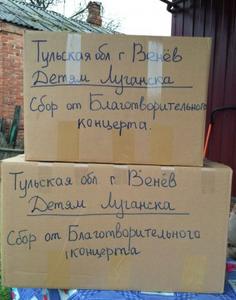 Тульская обл г Венёв
Детям Луганска
Сбор от Благотворительного
концерта.
Тульская обл г Венёв
Детям Луганска
Сбор от Благотворительного
концерта